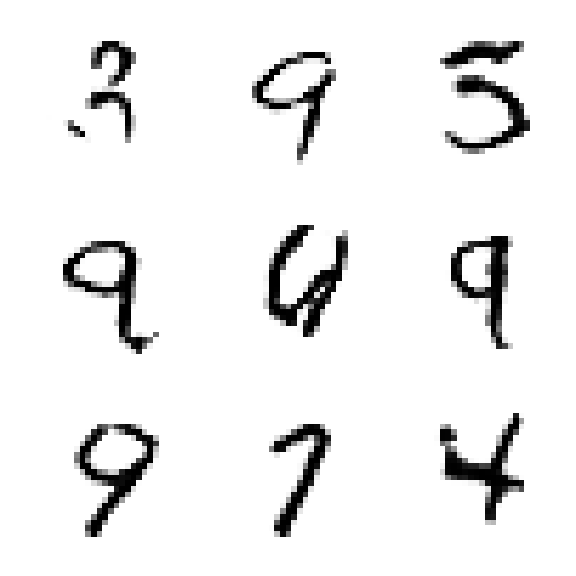 3 9 5
9 9
9 7 4